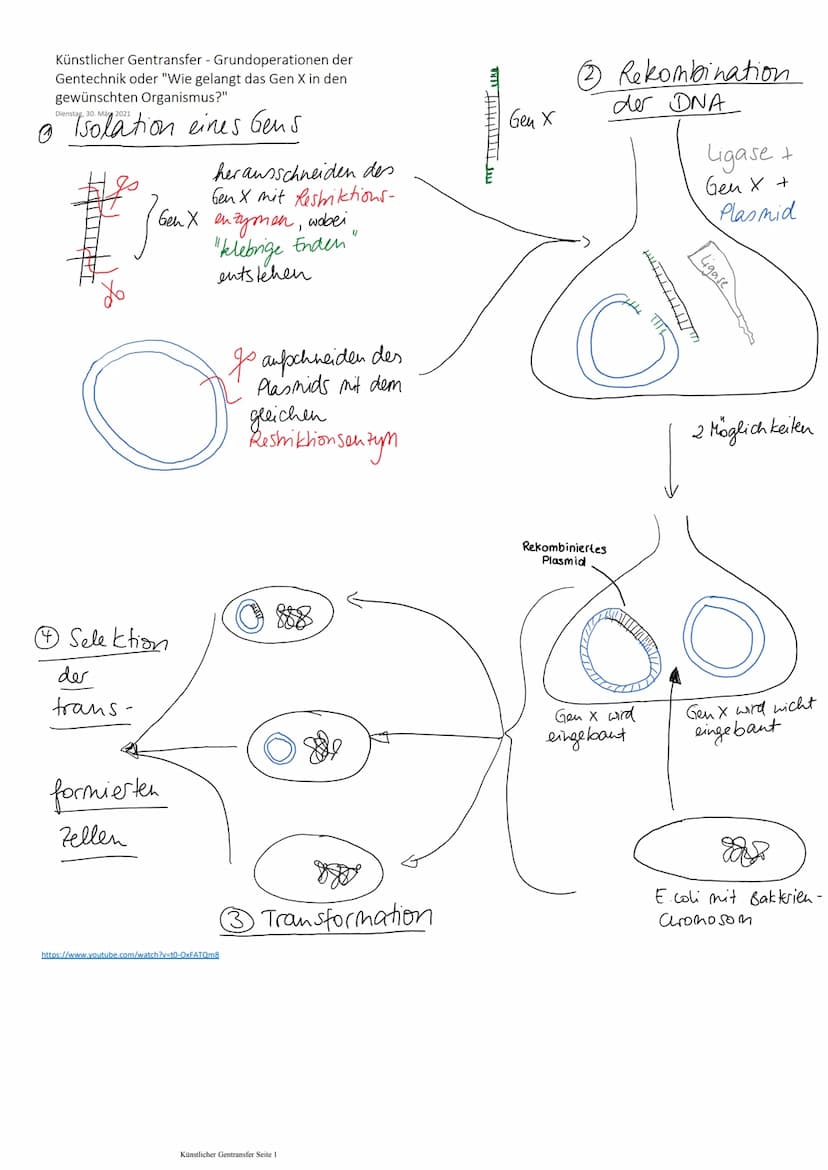 Künstlicher Gentransfer - Grundoperationen der
Gentechnik oder "Wie gelangt das Gen X in den
gewünschten Organismus?"
Dienstag, 30. März 2021
① Isolation eines Gens
Gen X
herausschneiden des
Gen X mit Restriktions-
enzymen, wobei
"klebrige Enden"
entstehen
aufschneiden des
Plasmids mit dem
gleichen
Restriktionsenzym
Gen X
② Rekombination
der DNA
Ligase +
Gen X +
Plasmid
Ligase
2 Möglichkeiten
Rekombiniertes
Plasmid
Gen X wird
eingebaut
Gen X wird nicht
eingebaut
E.coli mit Bakterien-
chromosom
③ Transformation
④ Selektion
der
trans-
formierten
Zellen
https://www.youtube.com/watch?v=t0-OxFATQm8
Künstlicher Gentransfer Seite 1